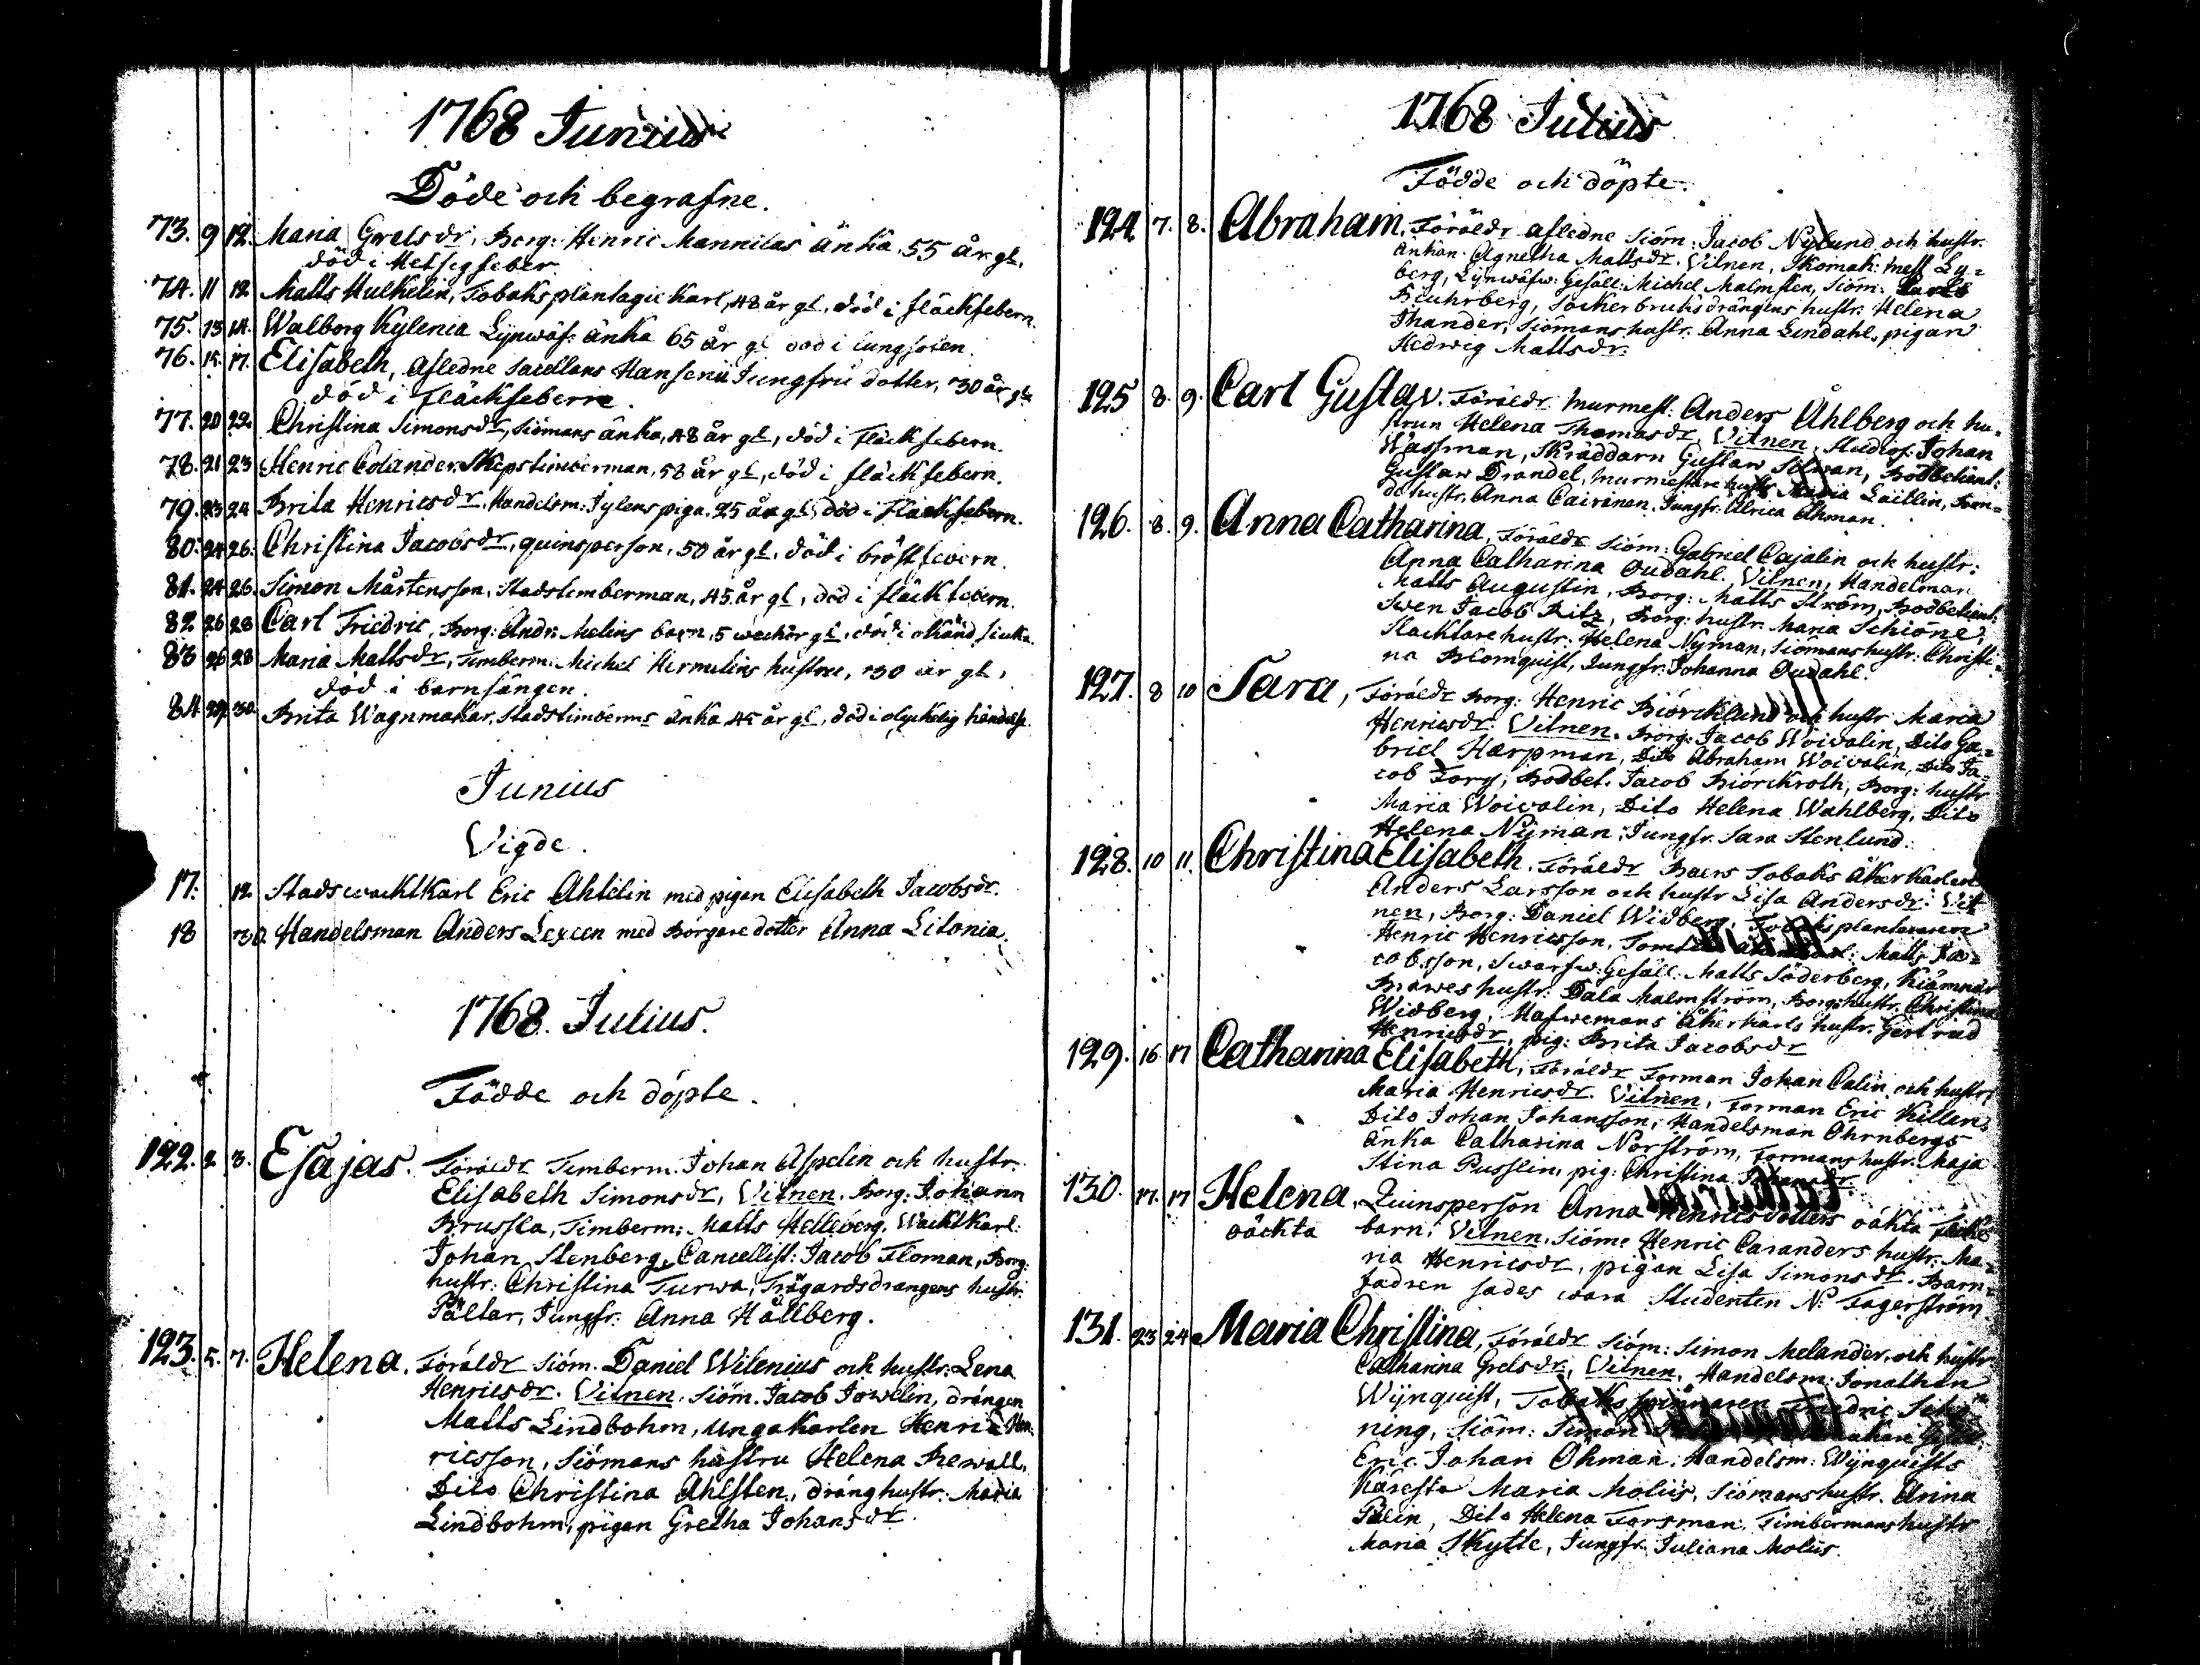 1768 Junius
Döde och begrafne.
73. 9 12. Maria Grelsdr, Borg: Henric Mannilas änka, 55 år gl,
död i Hetsigfeber.
74. 11 12 Matts Hulkelin, Tobaksplantagie Karl, 48 år gl, död i fläckfebern.
75. 13 14. Walborg Kylenia Lijnwäf: änka 65 år gl död i lungsoten.
76. 15. 17. Elisabeth, afledne Sacellans Hansenii Jungfru dotter, 30 år gl.
död i fläckfebern.
77. 20 22. Christina Simonsdr, Siömans änka, 48 år gl, död i fläckfebern.
78. 21 23 Henric Colander Skepstimberman, 58 år gl, död i fläckfebern.
79. 23 24 Brita Henricsdr. Handelsm: Jylens piga. 25 år gl, död i fläckfebern.
80. 24 26. Christina Jacobsdr, quinsperson, 50 år gl, död i bröstfebern.
81. 24 26. Simon Mårtensson, Stadstimberman, 45 år gl, död i fläckfebern.
82 26 28 Carl Friedric, Borg: Andr: Melins barn, 5 weckor gl, död i okänd siuka.
83 26 28 Maria Mattsdr, Timberm: Michel Hermelins hustru, 30 år gl,
död i barnsängen.
84 29 30. Brita Wagnmakar, Stadstimberms änka 45 år gl, död i olyckelig händelse.
Junius
Vigde.
17. 12. Stadswacktkarl Eric Ahlelin med pigan Elisabeth Jacobsdr.
18 30. Handelsman Anders Lexeen med Borgare dotter Anna Litonia.
1768. Julius.
Födde och döpte.
122. 2 3. Esajas. Föräldr Timberm: Johan Aspelin och hustr.
Elisabeth Simonsdr, Vitnen. Borg: Johann
Brussila, Timberm: Matts Helleberg, Wacktkarl:
Johan Stenberg, Cancellist: Jacob Floman, Borg:
hustr: Christina Turwa, Trägårdsdrängens hustr:
Pältar, Jungfr: Anna Hållberg.
123. 5. 7. Helena. Föräldr Siöm. Daniel Wilenius och hustr: Lena
Henricsdr. Vitnen. Siöm. Jacob Jowelin, drängen
Matts Lindbohm, Ungakarlen Henric Hen:
ricsson, Siömans hustru Helena Rewall,
Dito Christina Ahlsten, dränghustr: Maria
Lindbohm, pigan Gretha Johansdr.
1768 Julius
Födde och döpte.
124 7. 8. Abraham, Föräldr afledne Siöm: Jacob Nylund och hustr.
änkan. Agnetha Mattsdr. Vitnen, Skomak: mest Ly=
berg, Lijnwäfw: Gesäll: Michel Malmsten, Siöm:
Bluhrberg, Sockerbruksdrängens hustr. Helena
Thander, Siömans hustr. Anna Lindahl, pigan
Hedwig Mattsdr.
125 8. 9. Carl Gustav. Föräldr Murmest: Anders Åhlberg och hu=
strun Helena Thomasdr, Vitnen, Studios: Johan
Wassman, Skräddarn Gustaw Silwan, Bodbetient:
Gustaw Drandel, Murmestare hustr Maria Laitlin,
de hustr. Anna Cairenen, Jungfr. Ulrica Åhman.
126. 8. 9. Anna Catharina, Föräldr Siöm: Gabriel Cajalin och hustr:
Anna Catharina Oudahl. Vitnen, Handelman
Matts Augustin, Borg: Matts Ström, Bodbetient:
Swen Jacob Ritz, Borg: hustr: Maria Schiöne,
Slacktare hustr. Helena Nyman, Siömans hustr: Christi=
na Blomquist, Jungfr: Johanna Oudahl.
127. 8 10 Sara, Föräldr Borg: Henric Biörcklund och hustr Maria
Henricsdr. Vitnen. Borg: Jacob Woivalin, Dito Ga=
briel Harpman, Dito Abraham Woivalin, Dito Ja=
cob Forg, Bodbet. Jacob Biörckroth, Borg: hustr
Maria Woivalin, Dito Helena Wahlberg, Dito
Helena Nyman, Jungfr. Sara Stenlund.
128. 10 11. Christina Elisabeth. Föräldr Baers Tobaks Åkerkarlen
Anders Larsson och hustr Lisa Andersdr: Vit
nen, Borg: Daniel Widberg, Tobaksplanteraren
Henric Henricsson, Matts Ja=
cobsson, Swarfw: Gesäll. Matts Söderberg, Kiämnär
Brawes hustr: Dala Malmström, Borg: hustr. Christina
Widberg, Hafwemans Åkerkarls hustr. Gertrud
Henricsdr, pig: Brita Jacobsdr
129. 16 17 Catharina Elisabeth, Föräldr Forman Johan Calin och hustr,
Maria Henricsdr. Vitnen, Forman Eric Killen,
Dito Johan Johansson, Handelsman Öhrnbergs
änka Catharina Norström, Formans hustr. Maja
Stina Pusslin, pig: Christina Johansdr.
130. 17. 17 Helena, Quinsperson Anna Henricsdotters oäkta
oäckta barn. Vitnen. Siöm: Henric Caranders hustr. Ma=
ria Henricsdr, pigan Lisa Simonsdr. Barn=
fadren sades wara Studenten N: Fagerström.
131. 23 24 Maria Christina, Föräldr Siöm: Simon Melander, och hustr
Catharina Grelsdr, Vitnen. Handelsm: Jonathan
Wijnquist, Tobaksspinnaren Friedric
ning, Siöm: Simon
Eric Johan Öhman, Handelsm: Wijnquists
Käresta Maria Moliis, Siömans hustr. Anna
Palin, Dito Helena Forsman, Timbermans hustr
Maria Skytte, Jungfr. Juliana Moliis.